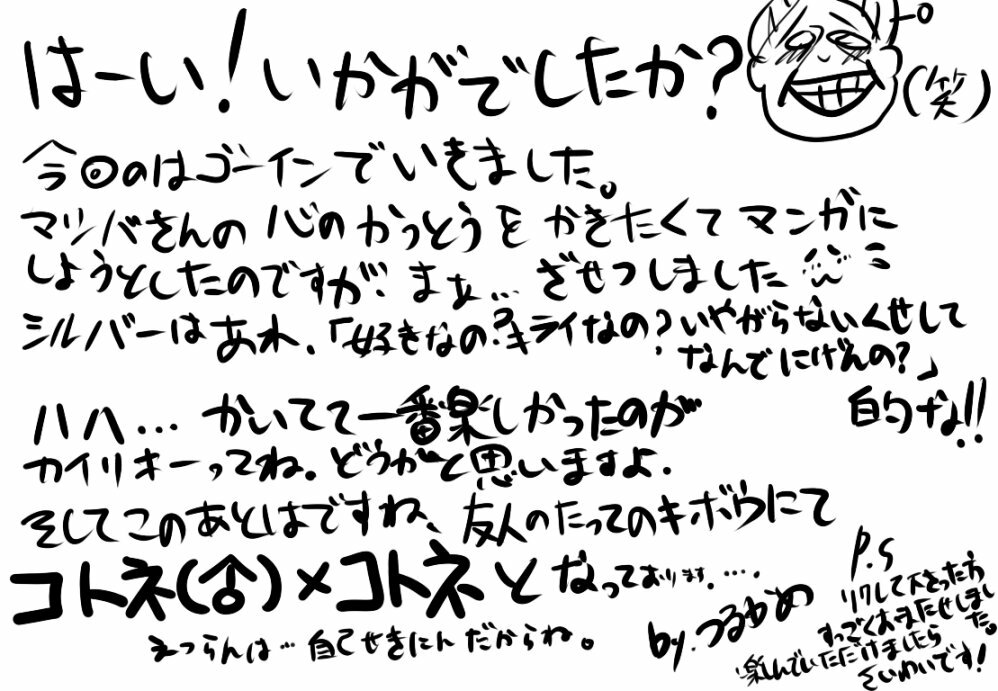 はーい!いかがでしたか?
(笑)
今回のはゴーインでいきました。
マツバさんの心のかっとうをかきたくてマンガに
しようとしたのですが、まぁ…ざせつしました
シルバーはあれ、「好きなの?キライなの?いやがらないくせして
なんでにげんの?」
的な!!
ハハ…かいてて一番楽しかったのが
カイリキーってね。どうかと思いますよ.
そしてこのあとはですね、友人のたってのキボウにて
コトネ(♂)×コトネとなっております.….
えつらんは…自己せきにんだからね。
by.つるかめ
P.S
リクして下さった方
すっごくおまたせしました。
楽しんでいただけましたら
さいわいです!